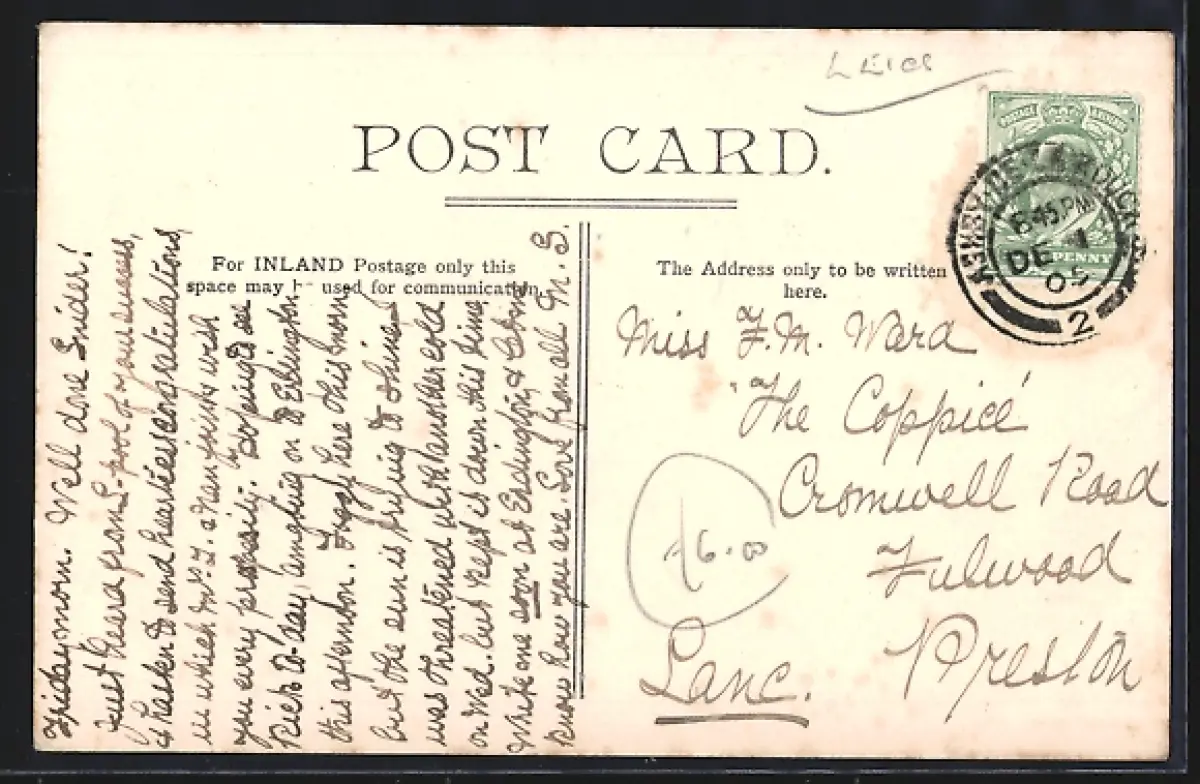 LEICS
POST CARD.
For INLAND Postage only this
space may be used for communication.
The Address only to be written
here.
ASHBY-DE-LA-ZOUCH
6.45 PM
DE 1
05
2
PENNY
Miss F. M. Ward
"The Coppice"
Cromwell Road
Fulwood
Preston
Lanc.
£6.00
Friday morn. Well done Snider!
Just heard from L-pool of your success,
& hasten to send heartiest congratulations,
in which Mr. L. & Nan join, with
you every prosperity. Hoping to see
Dick to-day, coming on to
this afternoon. Foggy here this morn
but the sun is trying to shine. I
was threatened with another cold
on Wed. but kept it down this time.
Write one soon at &
know how you are. Love from all M. S.